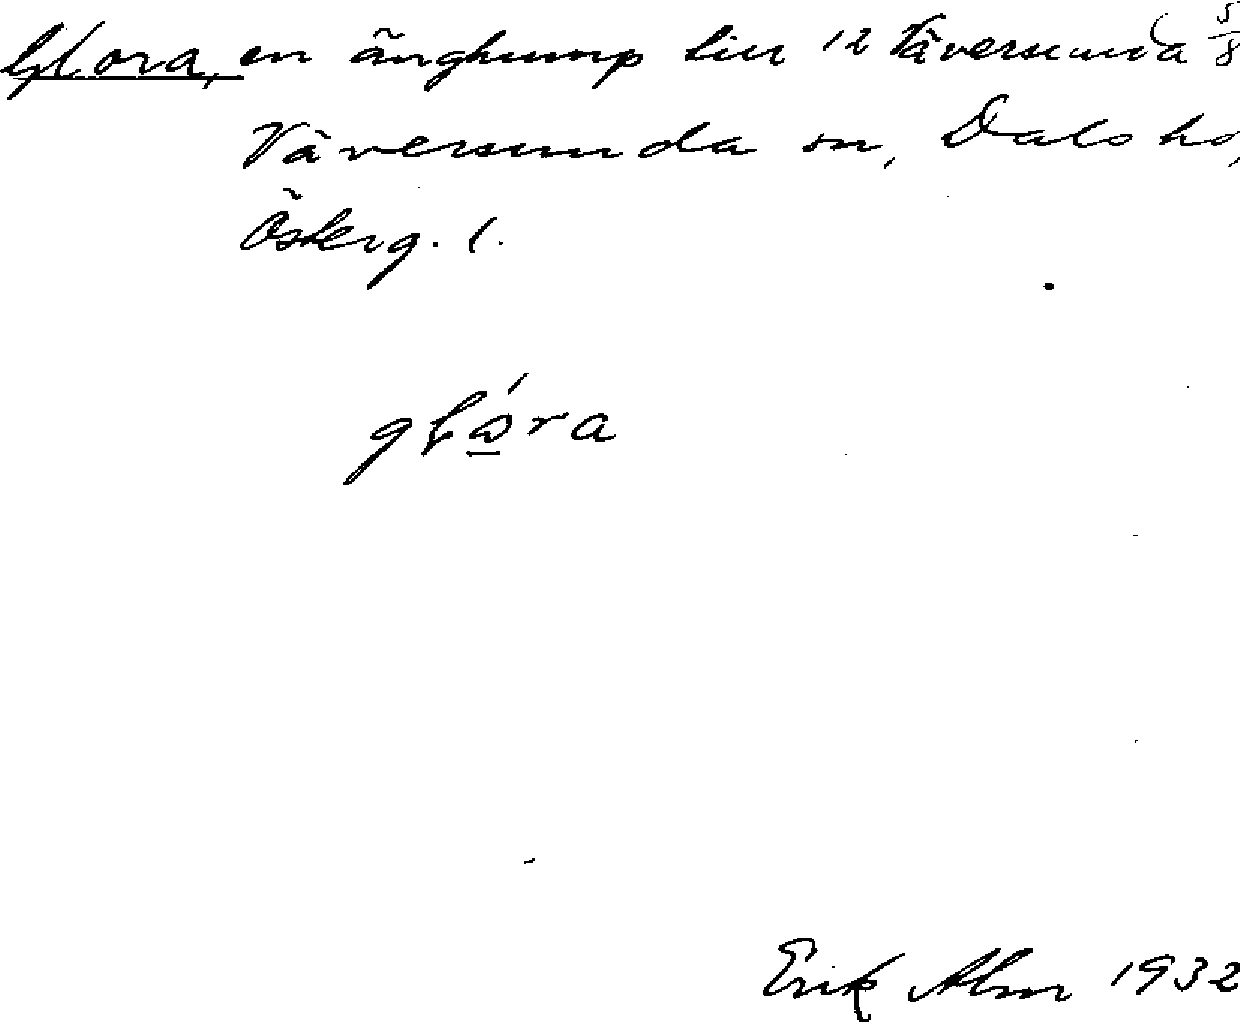 Glora, en änghump till 12 Väversunda 5/8
Väversunda sn, Dals hd,
Österg. l.
Erik Alm 1932